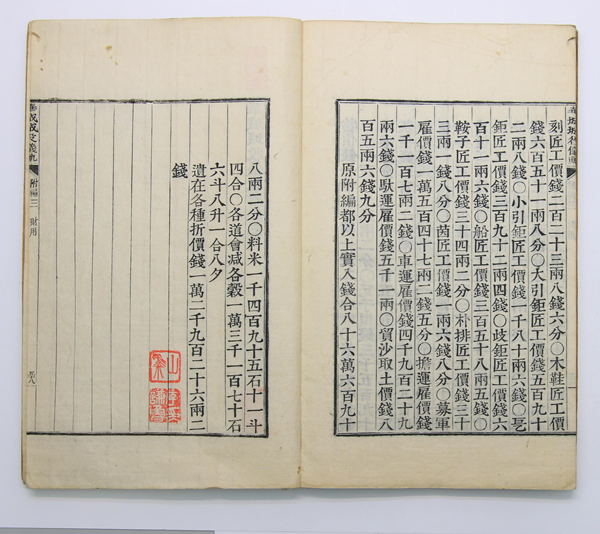 刻匠工價錢二百二十三兩八錢六分○木鞋匠工價
錢六百五十一兩八分○大引鉅匠工價錢五百九十
二兩八錢○小引鉅匠工價錢一千八十兩六錢○乬
鉅匠工價錢三百九十二兩四錢○歧鉅匠工價錢六
百十一兩六錢○船匠工價錢三百五十八兩五錢○
鞍子匠工價錢三十四兩二分○朴排匠工價錢三十
三兩一錢八分○茵匠工價錢一兩六錢八分○募軍
雇價錢一萬五百四十七兩二錢五分○擔運雇價錢
一千一百七兩二錢○車運雇價錢四千九百二十九
兩六錢○馱運雇價錢五千一兩○貿沙取土價錢八
百五兩六錢九分
原附編都以上實入錢合八十六萬六百九十
八兩二分○料米一千四百九十五石十一斗
四合○各道會减各穀一萬三千一百七十石
六斗八升一合八夕
遺在各種折價錢一萬二千九百二十六兩二
錢
附編三 財用